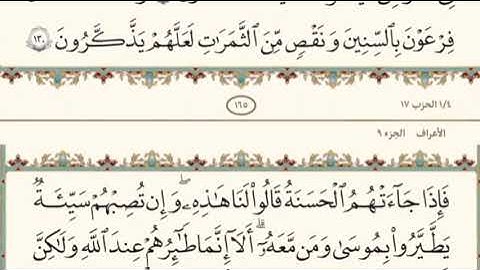 فِرْعَوْنَ بِالسِّنِينَ وَنَقْصٍ مِّنَ الثَّمَرَاتِ لَعَلَّهُمْ يَذَّكَّرُونَ ١٣٠
١/٤ الحزب ١٧
١٦٥
الأعراف الجزء ٩
فَإِذَا جَآءَتْهُمُ الْحَسَنَةُ قَالُوا۟ لَنَا هَـٰذِهِۦ ۖ وَإِن تُصِبْهُمْ سَيِّئَةٌ
يَطَّيَّرُوا۟ بِمُوسَىٰ وَمَن مَّعَهُۥٓ ۗ أَلَآ إِنَّمَا طَـٰٓئِرُهُمْ عِندَ اللَّهِ وَلَـٰكِنَّ